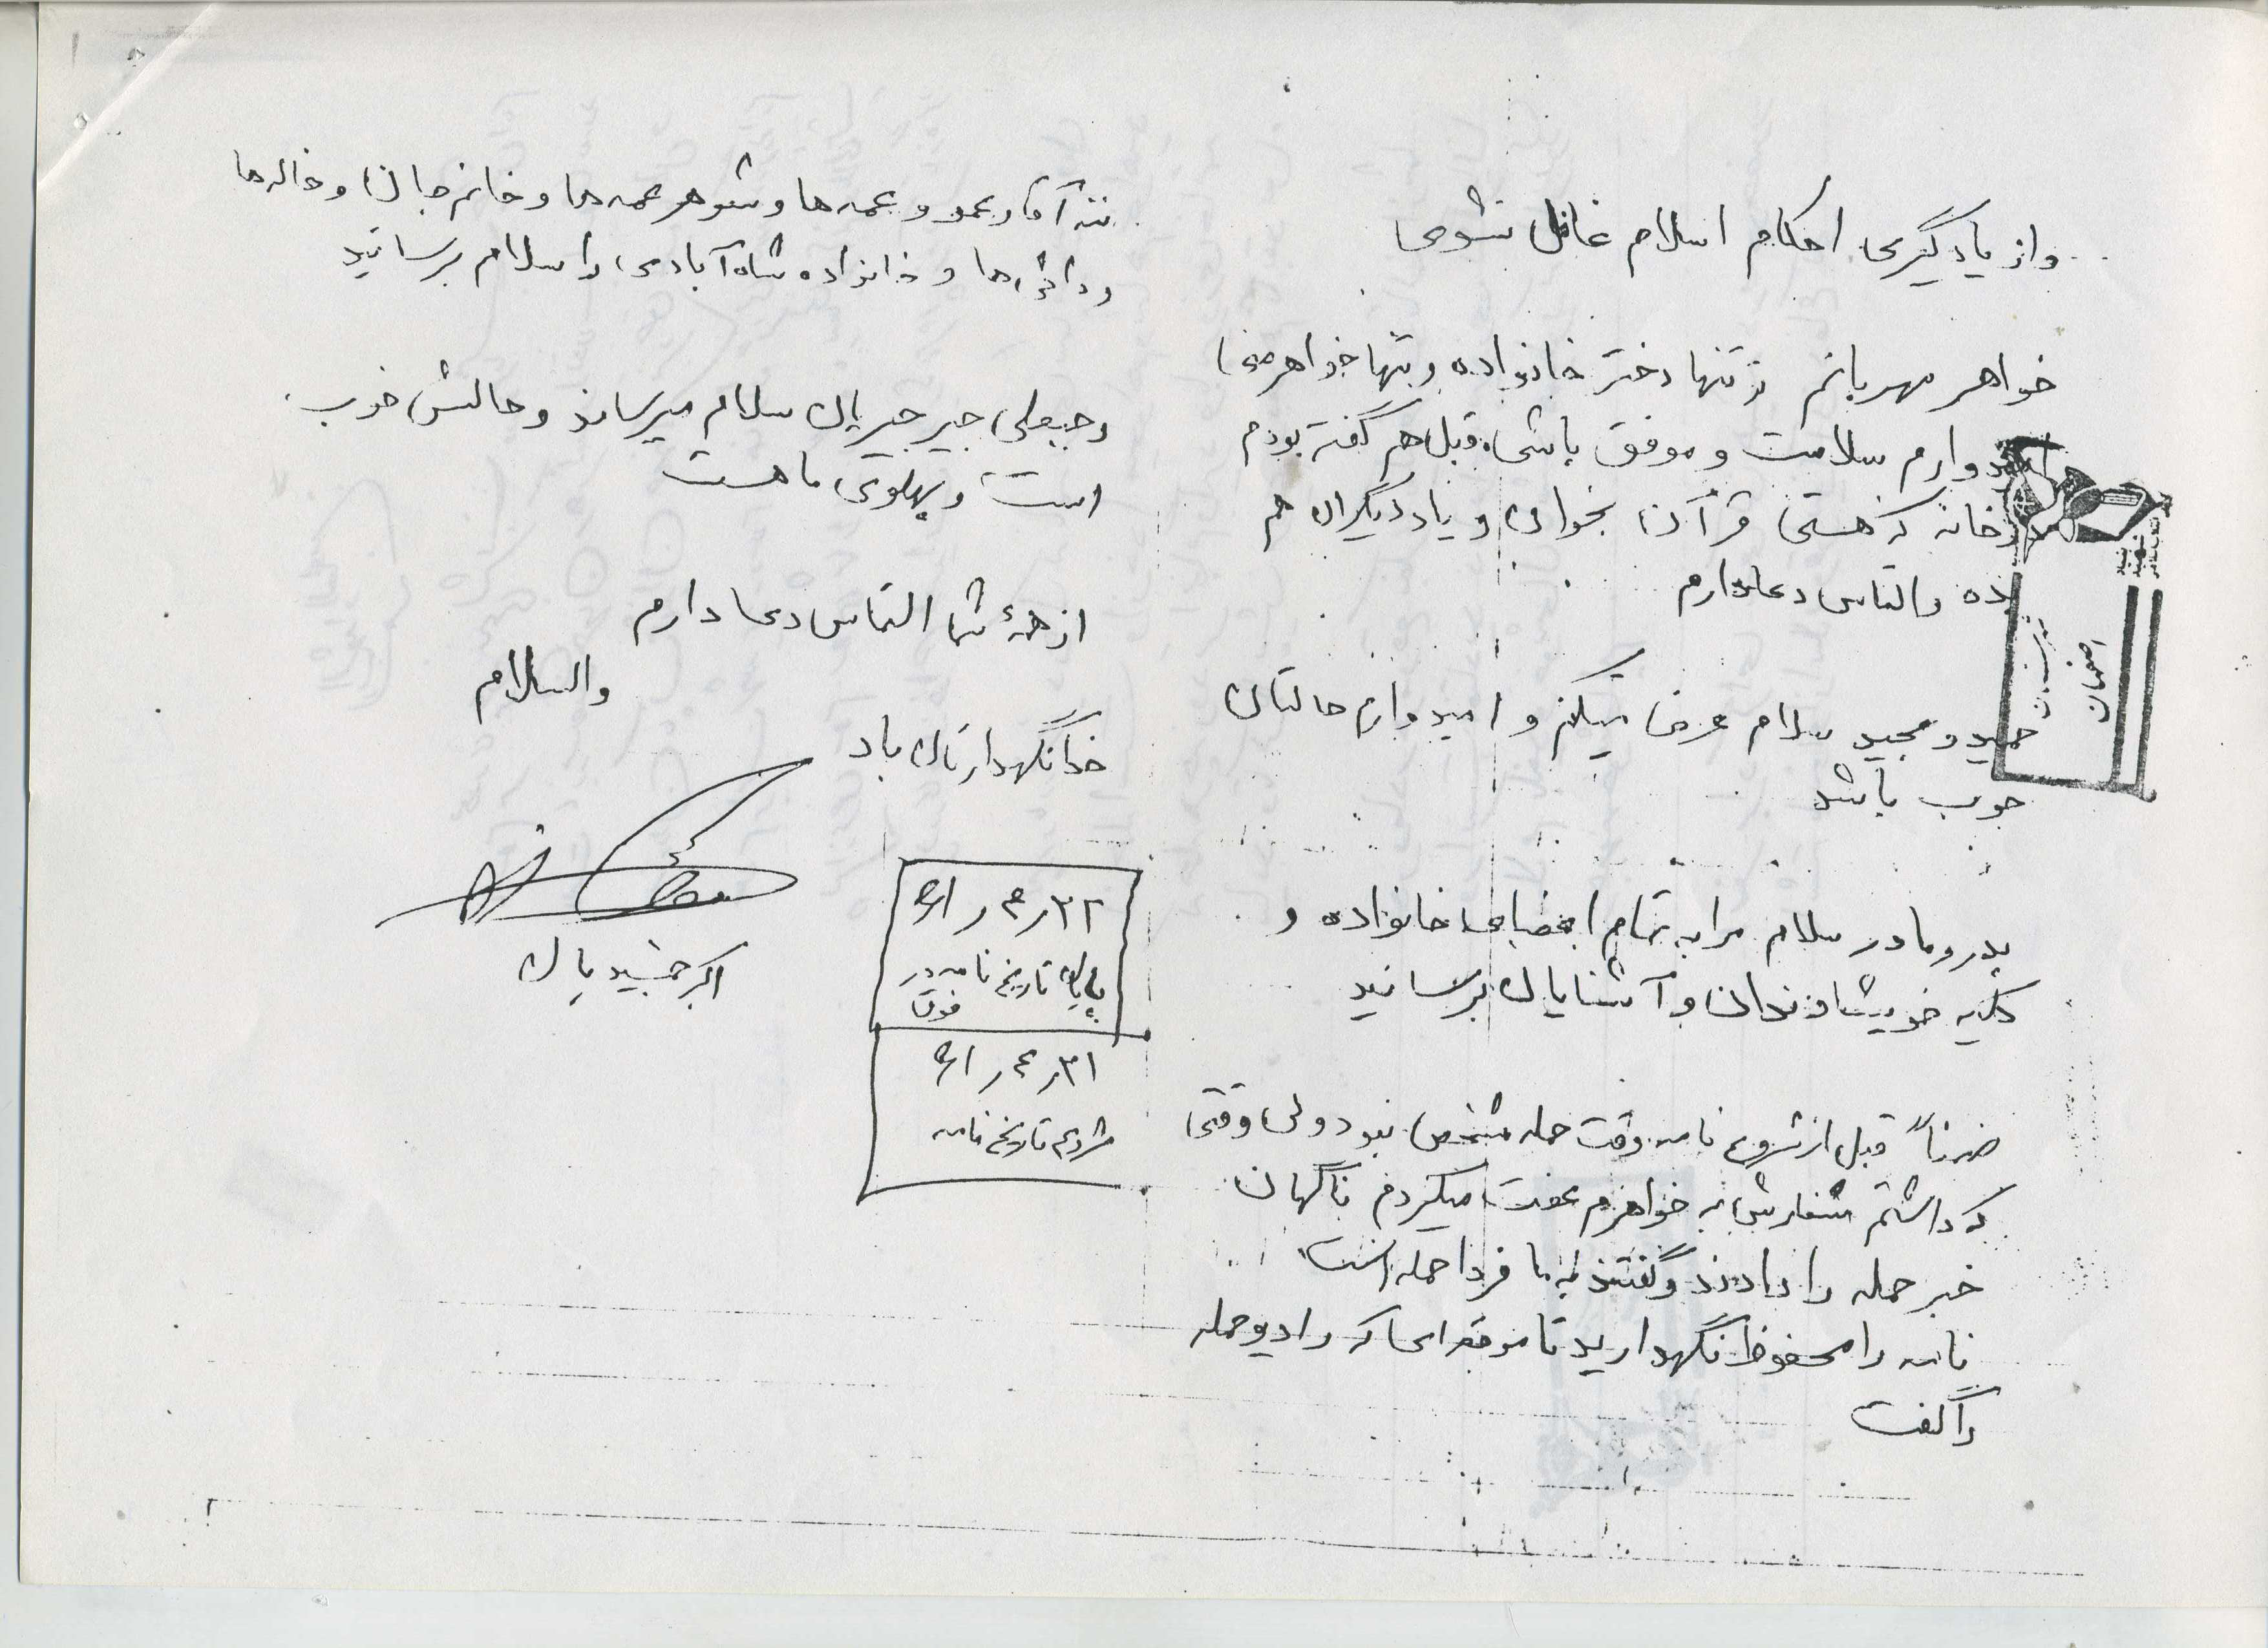 و از یادگیری احکام اسلام غافل نشوی
خواهر مهربانم تو تنها دختر خانواده و تنها خواهر منی
امیدوارم سلامت و موفق باشی. قبل هم گفته بودم
در خانه که هستی قرآن بخوان و یاد دیگران هم
بده و التماس دعا دارم
حمید و مجید سلام عرض میکنم و امیدوارم حالتان
خوب باشد
پدر و مادر سلام مرا به تمام اعضای خانواده و
کلیه خویشاوندان و آشنایان برسانید
ضمناً قبل از شروع نامه وقت حمله مشخص نبود ولی وقتی
که داشتم سفارش به خواهرم عفت میکردم ناگهان
خبر حمله را دادند و گفتند به ما فردا حمله است
نامه را محفوظ نگهدارید تا موقعه‌ای که رادیو حمله
را گفت
ننه آقا و عمو و عمه ها و شوهر عمه ها و خانم جان و خاله ها
و دائی ها و خانواده شاه آبادی را سلام برسانید
رجبعلی جیرجیریان سلام میرساند و حالش خوب
است و پهلوی ما هست
از همهٔ شما التماس دعا دارم
والسلام
خدا نگهدارتان باد
اکبر جمشیدیان
پایان تاریخ نامه در
فوق
شروع تاریخ نامه
اصفهان